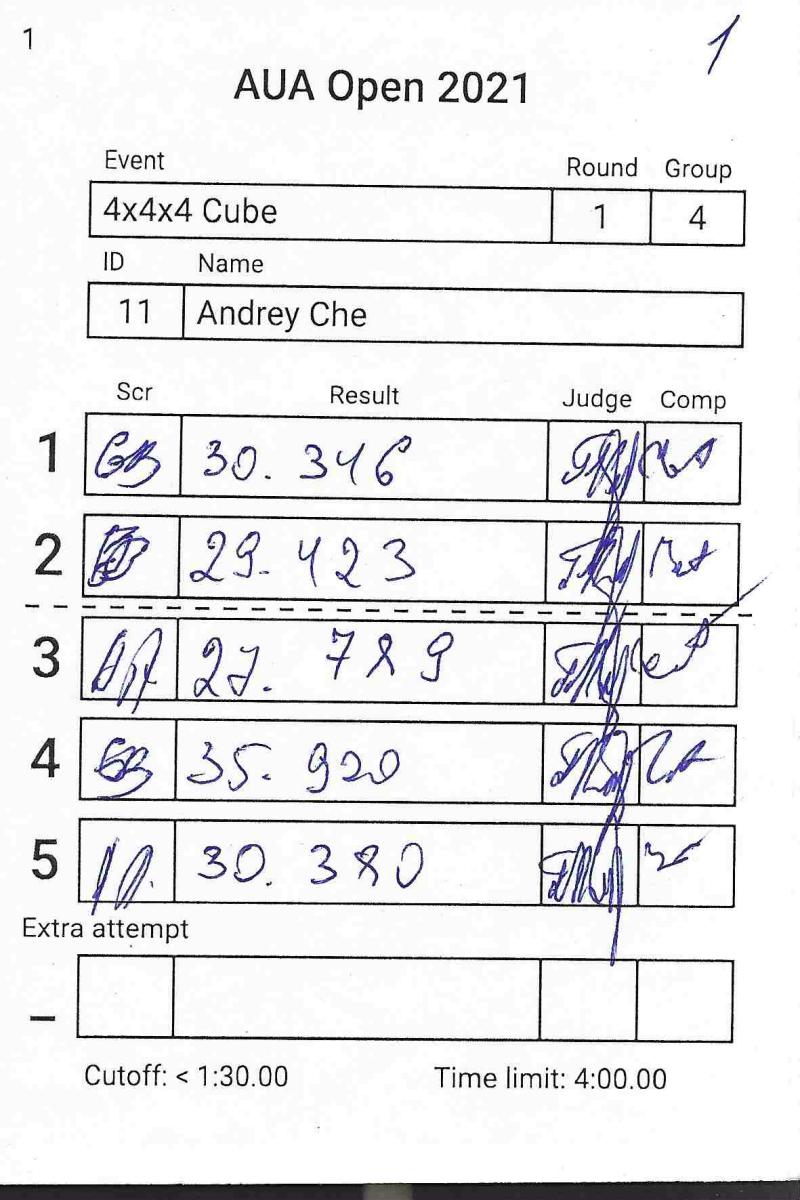 1
1
AUA Open 2021
Event Round Group
4x4x4 Cube 1 4
ID Name
11 Andrey Che
Scr Result Judge Comp
1 30.346
2 29.423
3 27.789
4 35.920
5 30.380
Extra attempt
_
Cutoff: < 1:30.00 Time limit: 4:00.00